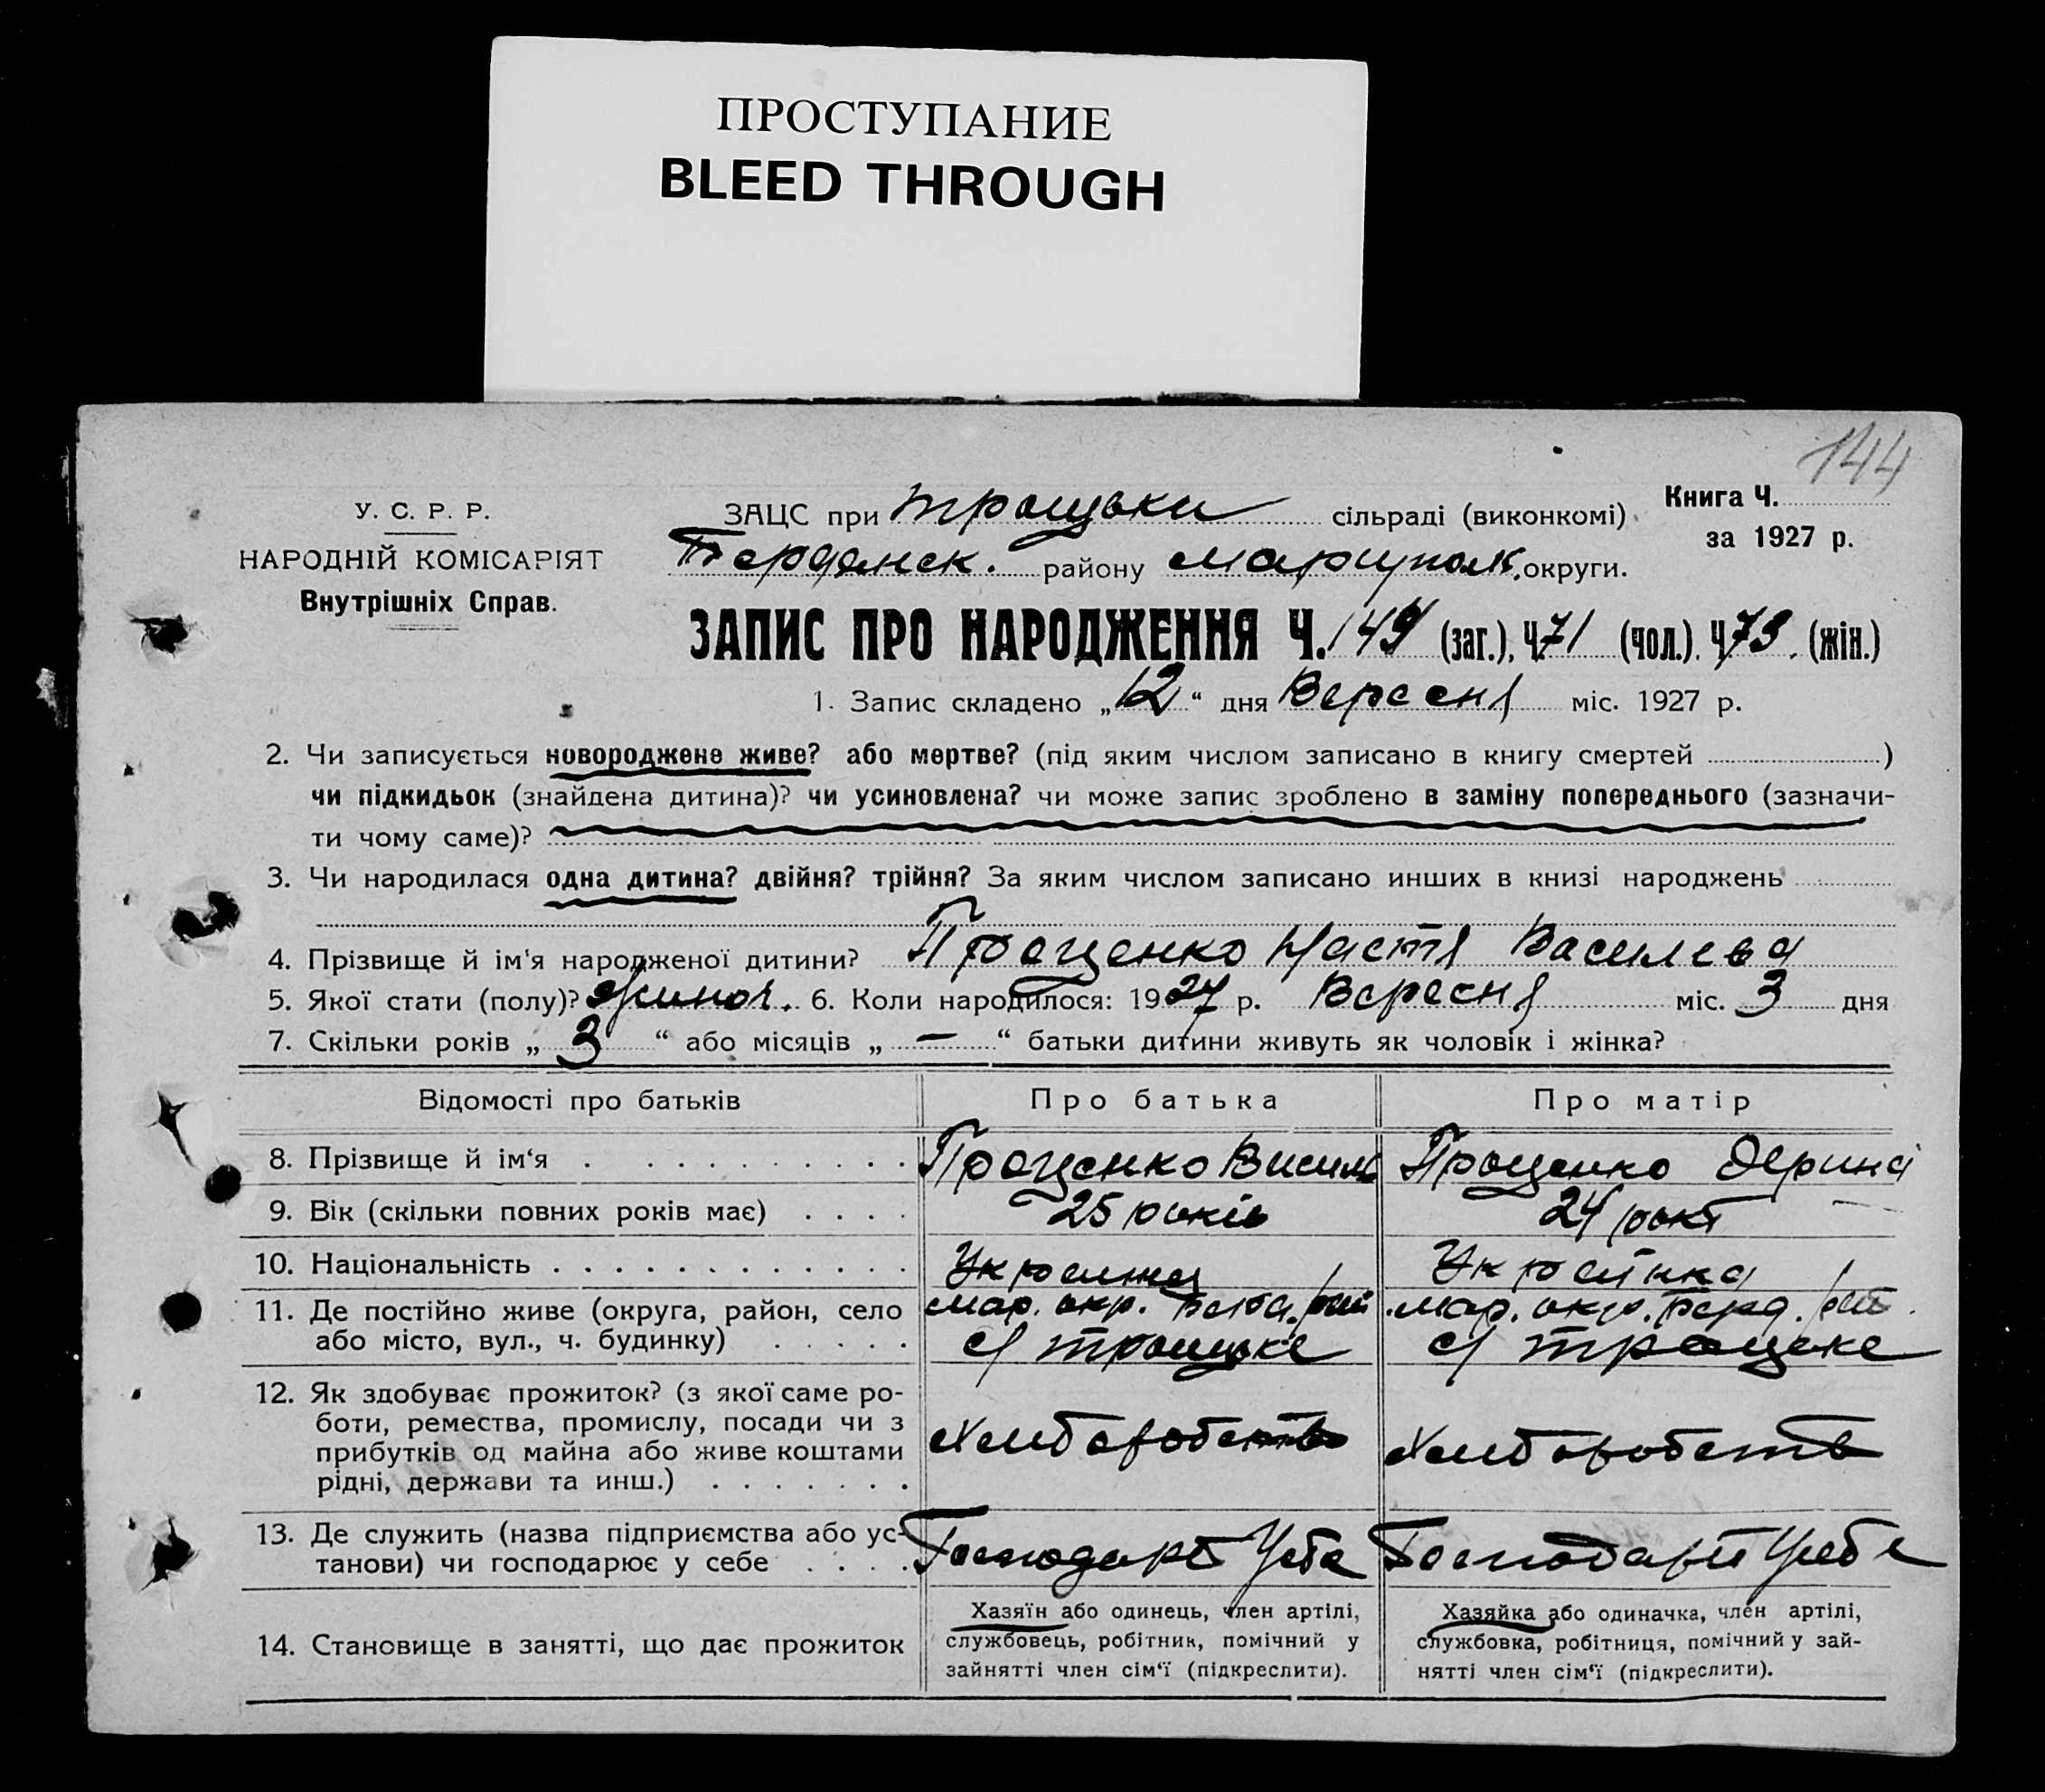 ПРОСТУПАНИЕ
BLEED THROUGH
144
У. С. Р. Р.
НАРОДНІЙ КОМІСАРІЯТ
Внутрішніх Справ.
ЗАЦС при Троцьки сільраді (виконкомі)
Книга Ч.
за 1927 р.
Бердянск. району Маріупольк. округи.
ЗАПИС ПРО НАРОДЖЕННЯ Ч. 149 (заг.), Ч. 71 (чол.). Ч. 73. (жін.)
1. Запис складено „12“ дня Вересня міс. 1927 р.
2. Чи записується новороджене живе? або мертве? (під яким числом записано в книгу смертей )
чи підкидьок (знайдена дитина)? чи усиновлена? чи може запис зроблено в заміну попереднього (зазначи-
ти чому саме)?
3. Чи народилася одна дитина? двійня? трійня? За яким числом записано инших в книзі народжень
4. Прізвище й ім'я народженої дитини? Проценко Настя Василева
5. Якої стати (полу)? жиноч. 6. Коли народилося: 1927 р. Вересня міс. 3 дня
7. Скільки років „3“ або місяців „—“ батьки дитини живуть як чоловік і жінка?
Відомості про батьків Про батька Про матір
8. Прізвище й ім‘я Проценко Василь Проценко
9. Вік (скільки повних років має) 25 років 24 рокі
10. Національність Украинка
11. Де постійно живе (округа, район, село
або місто, вул., ч. будинку)
мар. окр. Берд. рай мар. окр. Берд. рай
с/ Троцьке с/ Троцьке
12. Як здобуває прожиток? (з якої саме ро-
боти, ремества, промислу, посади чи з
прибутків од майна або живе коштами
рідні, держави та инш.)
Хлиборобство Хлиборобств
13. Де служить (назва підприємства або ус-
танови) чи господарює у себе
Господарі Усебе Господарі Усебе
14. Становище в занятті, що дає прожиток
Хазяїн або одинець, член артілі,
службовець, робітник, помічний у
зайнятті член сім‘ї (підкреслити).
Хазяйка або одиначка, член артілі,
службовка, робітниця, помічний у зай-
нятті член сім‘ї (підкреслити).